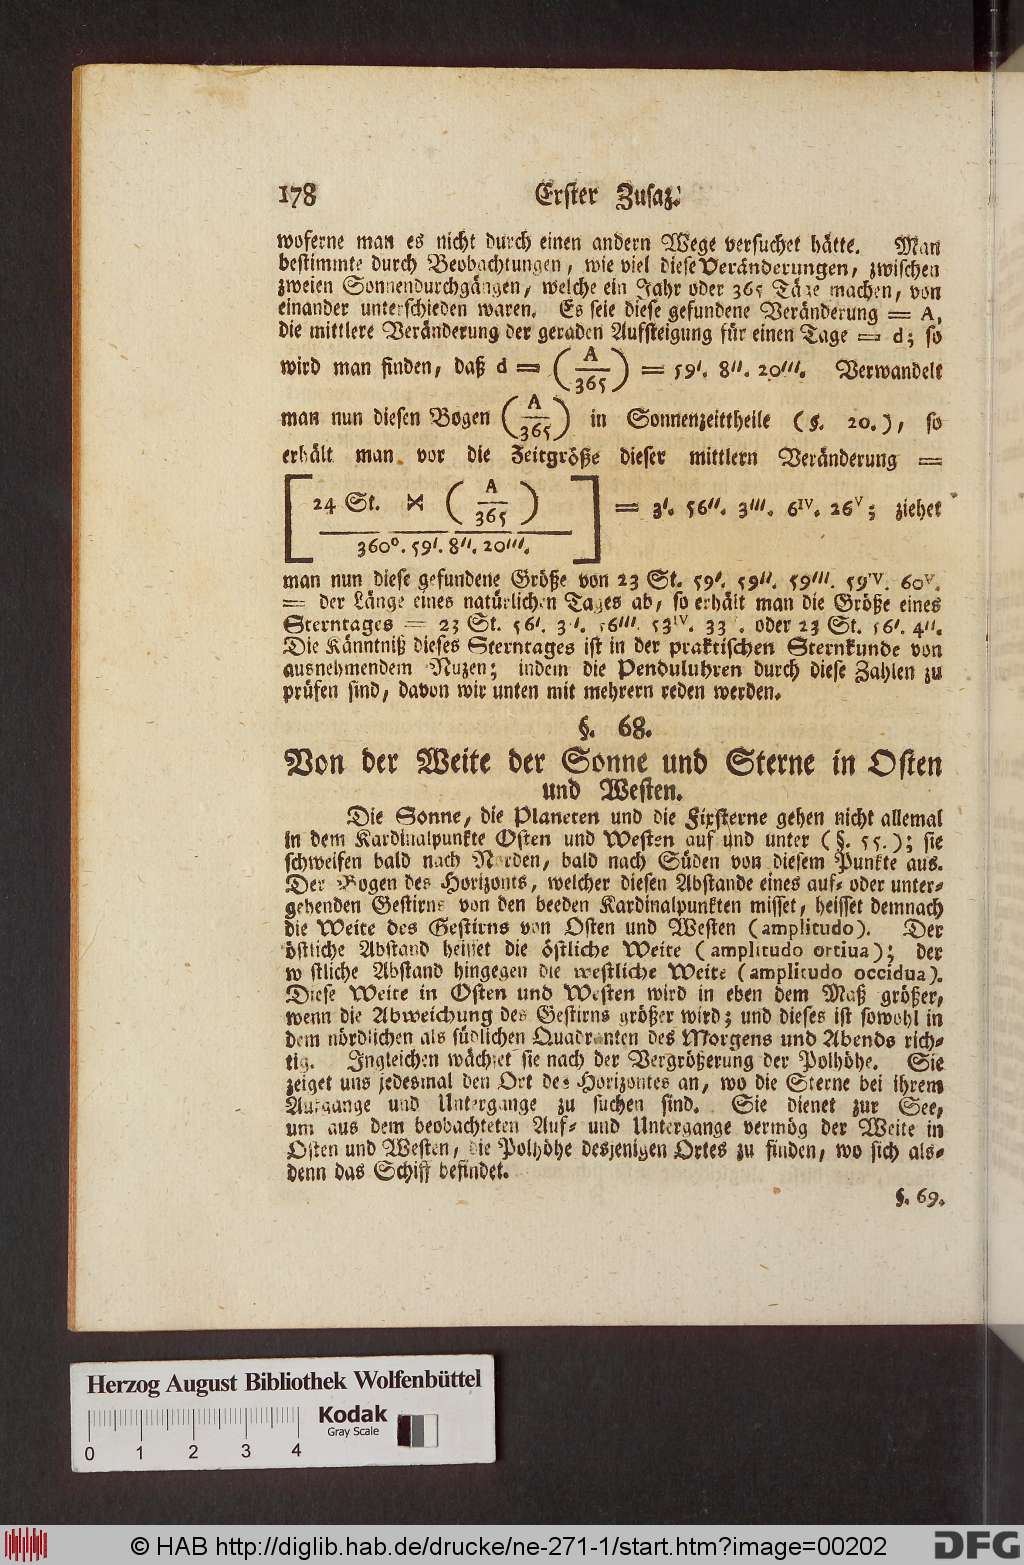 178 Erster Zusaz.
woferne man es nicht durch einen andern Wege versuchet hätte. Man
bestimmte durch Beobachtungen, wie viel diese Veränderungen, zwischen
zweien Sonnendurchgängen, welche ein Jahr oder 365 Täge machen, von
einander unterschieden waren. Es seie diese gefundene Veränderung = A,
die mittlere Veränderung der geraden Aufsteigung für einen Tage = d; so
wird man finden, daß d = (A/365) = 59′. 8″. 20‴. Verwandelt
man nun diesen Bogen (A/365) in Sonnenzeittheile (§. 20.), so
erhält man vor die Zeitgröße dieser mittlern Veränderung =
[24 St. × (A/365) / 360°. 59′. 8″. 20‴.] = 3′. 56″. 3‴. 6ᴵⱽ. 26ⱽ; ziehet
man nun diese gefundene Größe von 23 St. 59′. 59″. 59‴. 59ᴵⱽ. 60ⱽ.
= der Länge eines natürlichen Tages ab, so erhält man die Größe eines
Sterntages = 23 St. 56′. 3″. 56‴. 53ᴵⱽ. 33 . oder 23 St. 56′. 4″.
Die Känntniß dieses Sterntages ist in der praktischen Sternkunde von
ausnehmendem Nuzen; indem die Penduluhren durch diese Zahlen zu
prüfen sind, davon wir unten mit mehrern reden werden.
§. 68.
Von der Weite der Sonne und Sterne in Osten
und Westen.
Die Sonne, die Planeten und die Fixsterne gehen nicht allemal
in dem Kardinalpunkte Osten und Westen auf und unter (§. 55.); sie
schweifen bald nach Norden, bald nach Süden von diesem Punkte aus.
Der Bogen des Horizonts, welcher diesen Abstande eines auf- oder unter-
gehenden Gestirns von den beeden Kardinalpunkten misset, heisset demnach
die Weite des Gestirns von Osten und Westen (amplitudo). Der
östliche Abstand heisset die östliche Weite (amplitudo ortiua); der
westliche Abstand hingegen die westliche Weite (amplitudo occidua).
Diese Weite in Osten und Westen wird in eben dem Maß größer,
wenn die Abweichung des Gestirns größer wird; und dieses ist sowohl in
dem nördlichen als südlichen Quadranten des Morgens und Abends rich-
tig. Ingleichen wächset sie nach der Vergrößerung der Polhöhe. Sie
zeiget uns jedesmal den Ort des Horizontes an, wo die Sterne bei ihrem
Aufgange und Untergange zu suchen sind. Sie dienet zur See,
um aus dem beobachteten Auf- und Untergange vermög der Weite in
Osten und Westen, die Polhöhe desjenigen Ortes zu finden, wo sich als-
denn das Schiff befindet.
§. 69.
Herzog August Bibliothek Wolfenbüttel
Kodak
Gray Scale
0 1 2 3 4
© HAB http://diglib.hab.de/drucke/ne-271-1/start.htm?image=00202
DFG